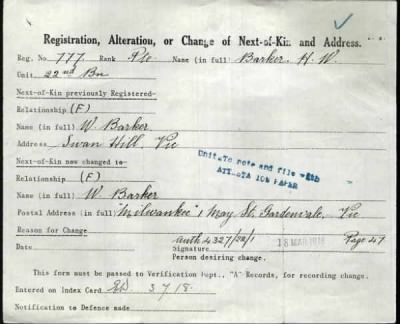 Registration, Alteration, or Change of Next-of-Kin and Address.
Reg. No. 777 Rank Pte Name (in full) Barker, H. W.
Unit 22nd Bn
Next-of-Kin previously Registered-
Relationship (F)
Name (in full) W. Barker.
Address Swan Hill. Vic
Next-of-Kin now changed to-
Relationship (F)
Units to note and file with
ATTESTATION PAPER
Name (in full) W. Barker
Postal Address (in full) "Milwankee" 1 May St. Gardenvale, Vic
Reason for Change
Auth 4327/22/1 18 MAR 1918 Page 47
Date Signature
Person desiring change.
This form must be passed to Verification Dept., "A" Records, for recording change.
Entered on Index Card 3 7 18.
Notification to Defence made